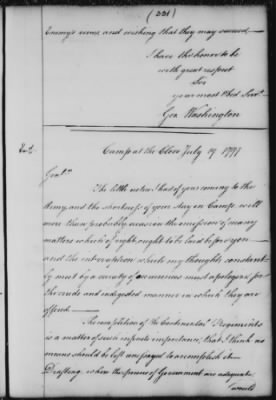 (331)
Enemy's arms, and wishing that they may succeed —
I have the honor to be
with great respect
Sir
your most Obed. Serv.
Geo. Washington
Camp at the Clove July 19. 1777
Gent.
The little notice I had of your coming to the
Army, and the shortness of your stay in Camp will
more than probably occasion the omission of many
matters which of right, ought to be laid before you —
and the interruption which my thoughts constant-
ly meet by a variety of occurrences must apologize for
the crude and indigested manner in which they are
offered —
The completion of the Continental Regiments
is a matter of such infinite importance, that I think no
means should be left unessayed to accomplish it —
Drafting, where the powers of Government are adequate,
would